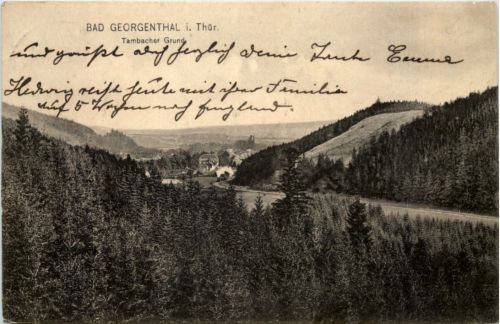 BAD GEORGENTHAL i. Thür.
Tambacher Grund
und grüßt dich herzlich deine Tante Emma
Hedwig reist heute mit ihrer Familie
auf 5 Wochen nach England